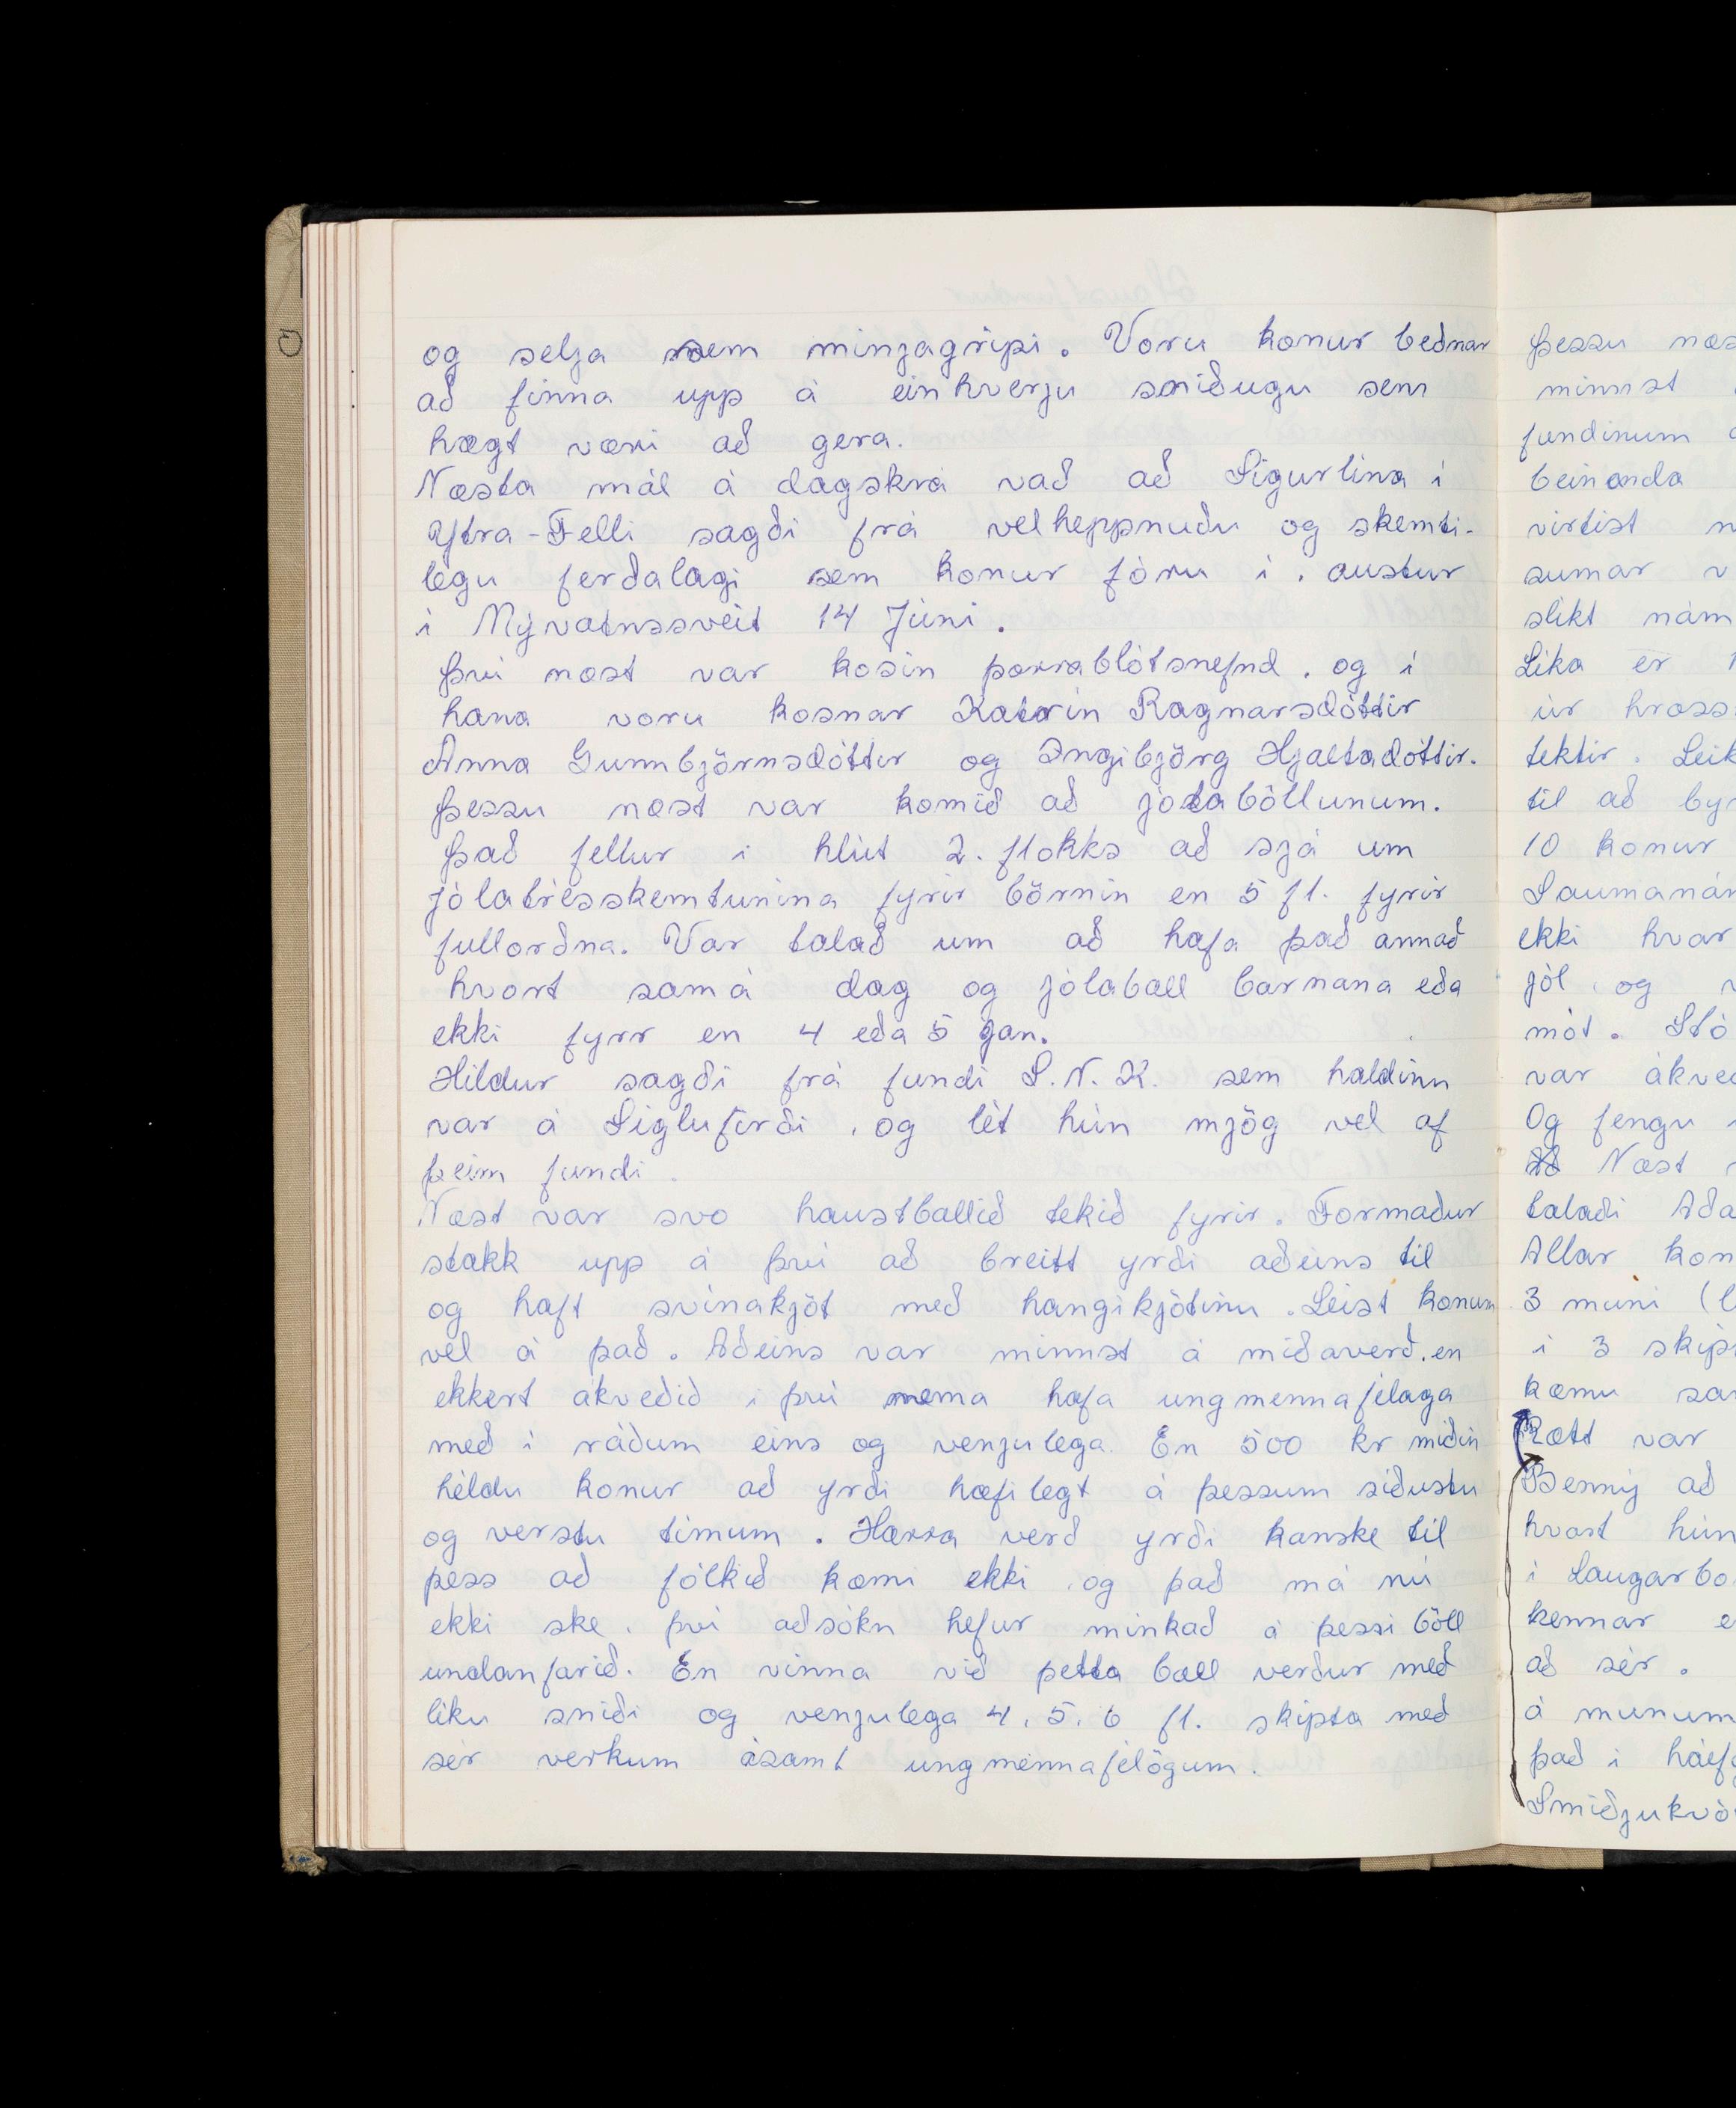 og selja sem minjagripi. Voru konur beðnar
að finna upp á einhverju sniðugu sem
hægt væri að gera.
Næsta mál á dagskrá vað að Sigurlína í
Ytra-Felli sagði frá velheppnuðu og skemti-
legu ferðalagi sem konur fóru í. austur
í Mývatnssveit 14 Júní.
Því næst var kosin þorrablótsnefnd. og í
hana voru kosnar Katrín Ragnarsdóttir
Anna Gunnbjörnsdóttir og Ingibjörg Hjaltadóttir.
Þessu næst var komið að jólaböllunum.
Það fellur í hlut 2. flokks að sjá um
jólatrésskemtunina fyrir börnin en 5 fl. fyrir
fullorðna. Var talað um að hafa það annað
hvort samá dag og jólaball barnana eða
ekki fyrr en 4 eða 5 jan.
Hildur sagði frá fundi S.N.K. sem haldinn
var á Siglufirði, og lét hún mjög vel af
þeim fundi.
Næst var svo haustballið tekið fyrir. Formaður
stakk upp á því að breitt yrði aðeins til
og haft svínakjöt með hangikjötinu. Leist konum
vel á það. Aðeins var minnst á miðaverð. en
ekkert ákveðið í því nema hafa ungmennafélaga
með í ráðum eins og venjulega. En 500 kr miðin
héldu konur að yrði hæfilegt á þessum síðustu
og verstu tímum. Hærra verð yrði kanske til
þess að fólkið kæmi ekki og það má nú
ekki ske, því aðsókn hefur minkað á þessi böll
undanfarið. En vinna við þetta ball verður með
líku sniði og venjulega 4. 5. 6 fl. skipta með
sér verkum ásamt ungmennafélögum.
þessu
minnst
fundinum
virtist
sumar
slíkt
Líka er
úr
tektir.
til að
10 konur
ekki hvar
jól, og
mót.
var
Og fengu
Næst
talaði
Allar
3 muni
í 3
kæmu
Rætt var
Benný að
hvort
í
kennar
að sér.
á munum
það í